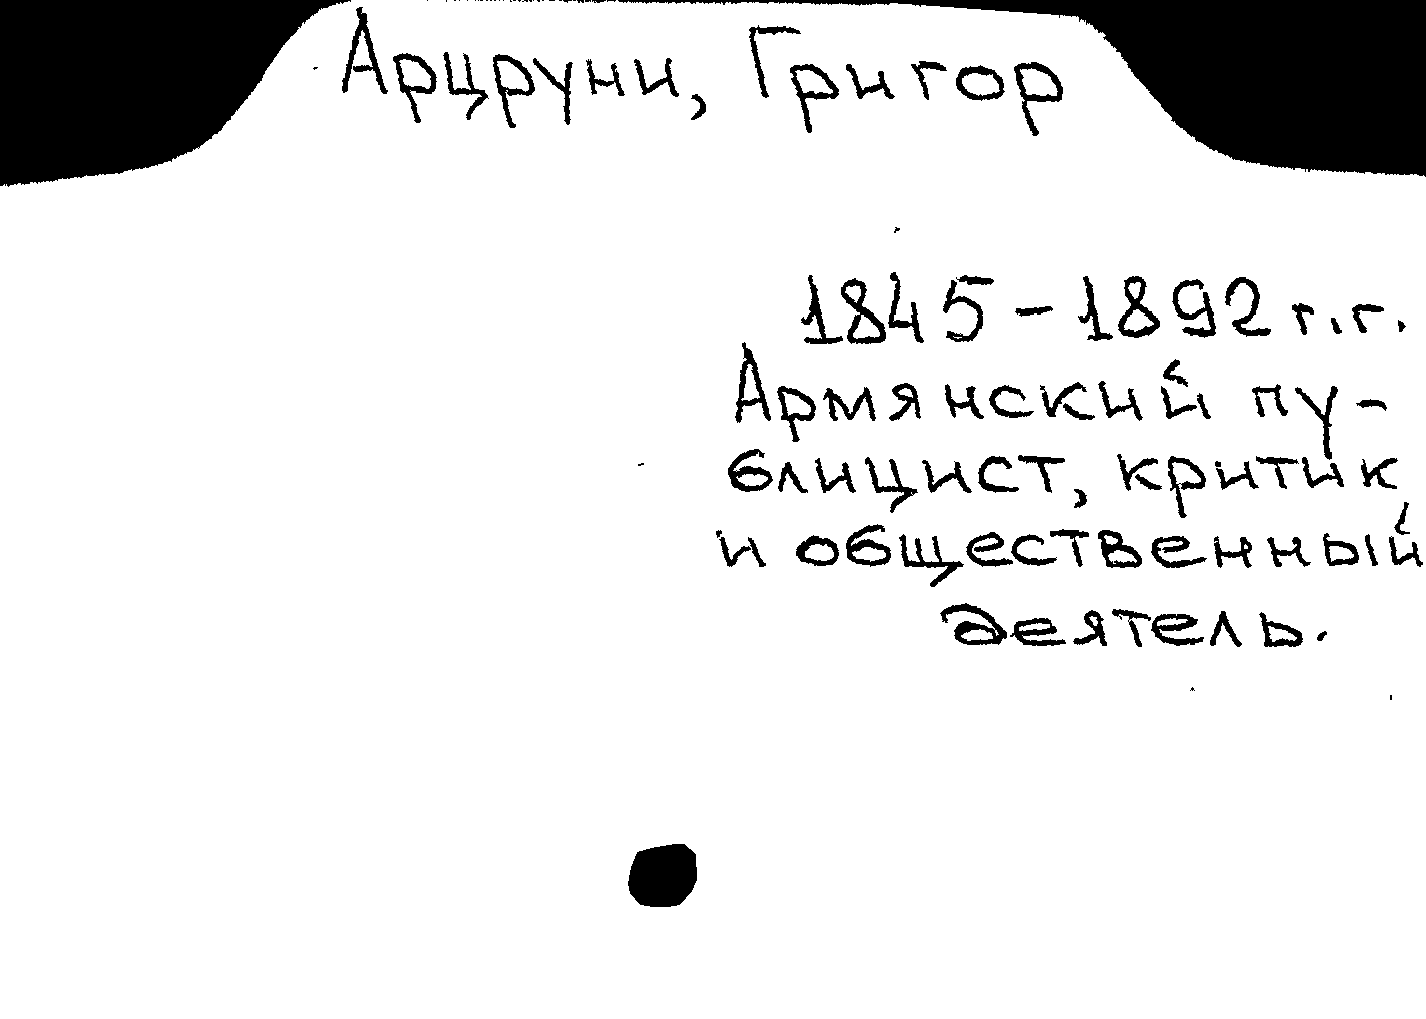 Арцруни, Григор
1845-1892 г.г.
Армянский пу-
блицист, критик
и общественный
деятель.